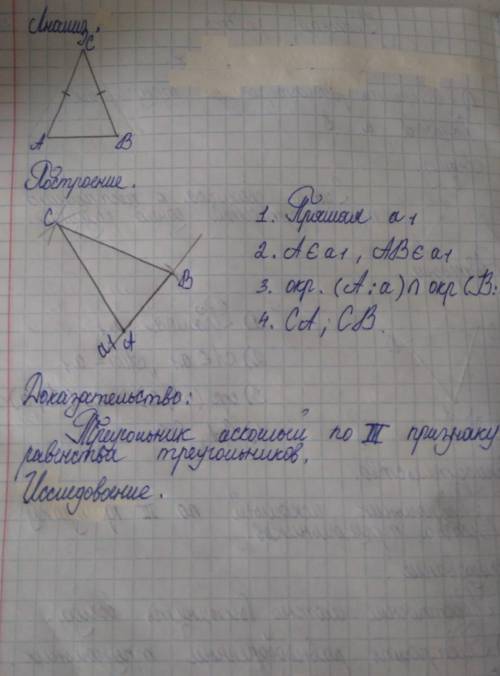 Анализ.
C
A B
Построение.
C
B
a1 A
1. Прямая a1
2. A∈a1, AB∈a1
3. окр. (A; a)∩окр(B;
4. CA; CB.
Доказательство:
Треугольник искомый по III признаку
равенства треугольников.
Исследование.